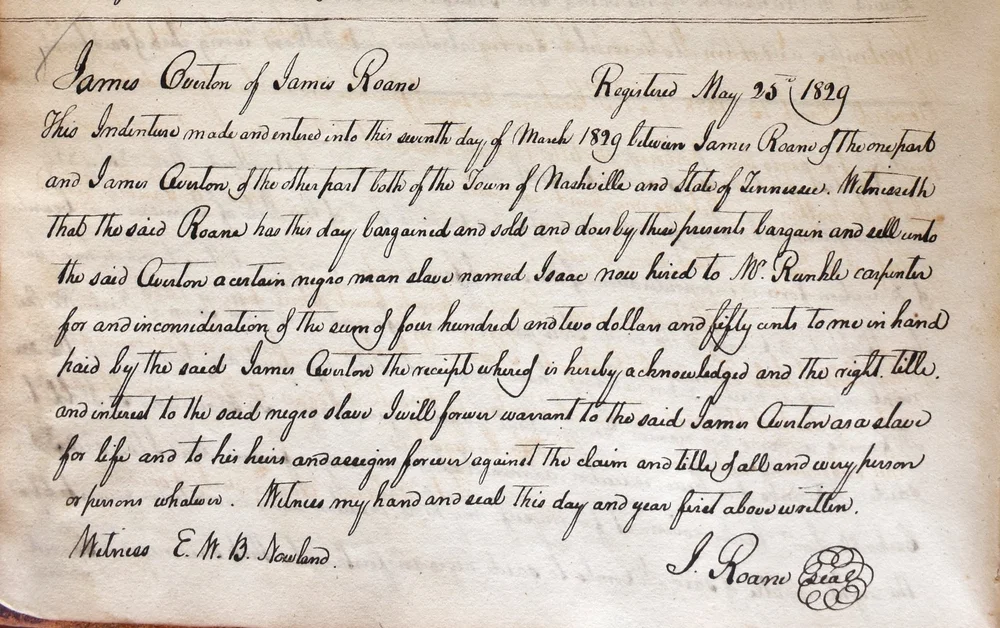 James Overton of James Roane Registered May 25th 1829
This Indenture made and entered into this seventh day of March 1829 between James Roane of the one part
and James Overton of the other part both of the Town of Nashville and State of Tennessee. Witnesseth
that the said Roane has this day bargained and sold and does by these presents bargain and sell unto
the said Overton a certain negro man slave named Isaac now hired to Mr. Runkle carpenter
for and in consideration of the sum of four hundred and two dollars and fifty cents to me in hand
paid by the said James Overton the receipt whereof is hereby acknowledged and the right title.
and interest to the said negro slave I will forever warrant to the said James Overton as a slave
for life and to his heirs and assigns forever against the claim and title of all and every person
or persons whatever. Witness my hand and seal this day and year first above written.
Witness E. W. B. Nowland. J. Roane seal